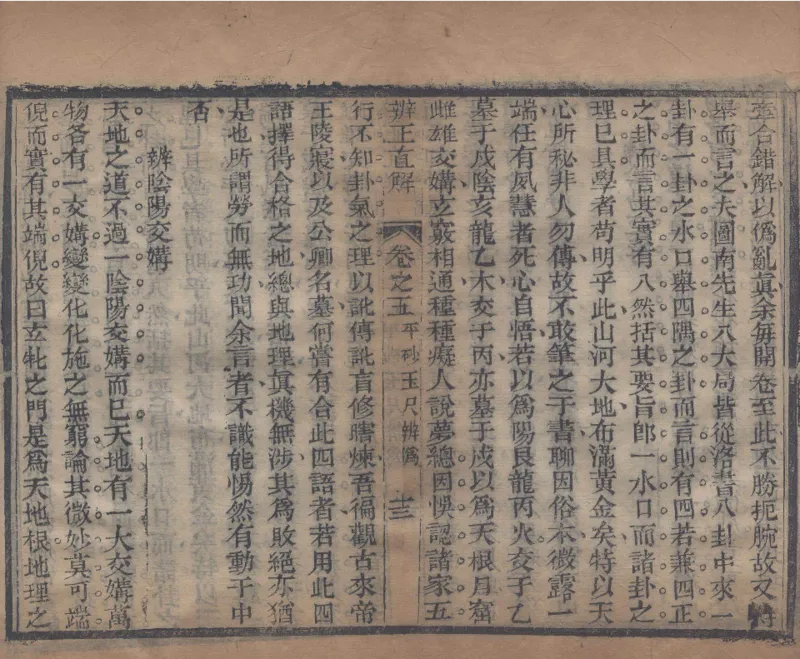 牽合錯解以僞亂眞余每開卷至此不勝扼腕故又特
舉而言之夫圖南先生八大局皆從洛書八卦中來一
卦有一卦之水口舉四隅之卦而言則有四若兼四正
之卦而言其實有八然括其要旨卽一水口而諸卦之
理巳具學者苟明乎此山河大地布滿黃金矣特以天
心所秘非人勿傳故不敢筆之于書聊因俗本微露一
端任有夙慧者死心自悟若以爲陽艮龍丙火交于乙
墓于戌陰亥龍乙木交于丙亦墓于戌以爲天根月窟
雌雄交媾玄竅相通種種癡人說夢總因悞認諸家五
辨正直解 卷之五 平砂玉尺辨僞 十三
行不知卦氣之理以訛傳訛盲修瞎煉吾徧觀古來帝
王陵寢以及公卿名墓何嘗有合此四語者若用此四
語擇得合格之地總與地理眞機無涉其爲敗絕亦猶
是也所謂勞而無功聞余言者不識能惕然有動于中
否
辨陰陽交媾
天地之道不過一陰陽交媾而巳天地有一大交媾萬
物各有一交媾變變化化施之無窮論其微妙莫可端
倪而實有其端倪故曰玄牝之門是爲天地根地理之